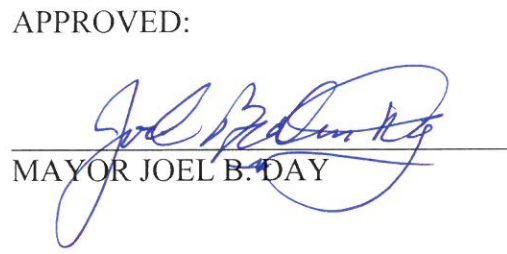 APPROVED:
Joel
MAYOR JOEL B. DAY